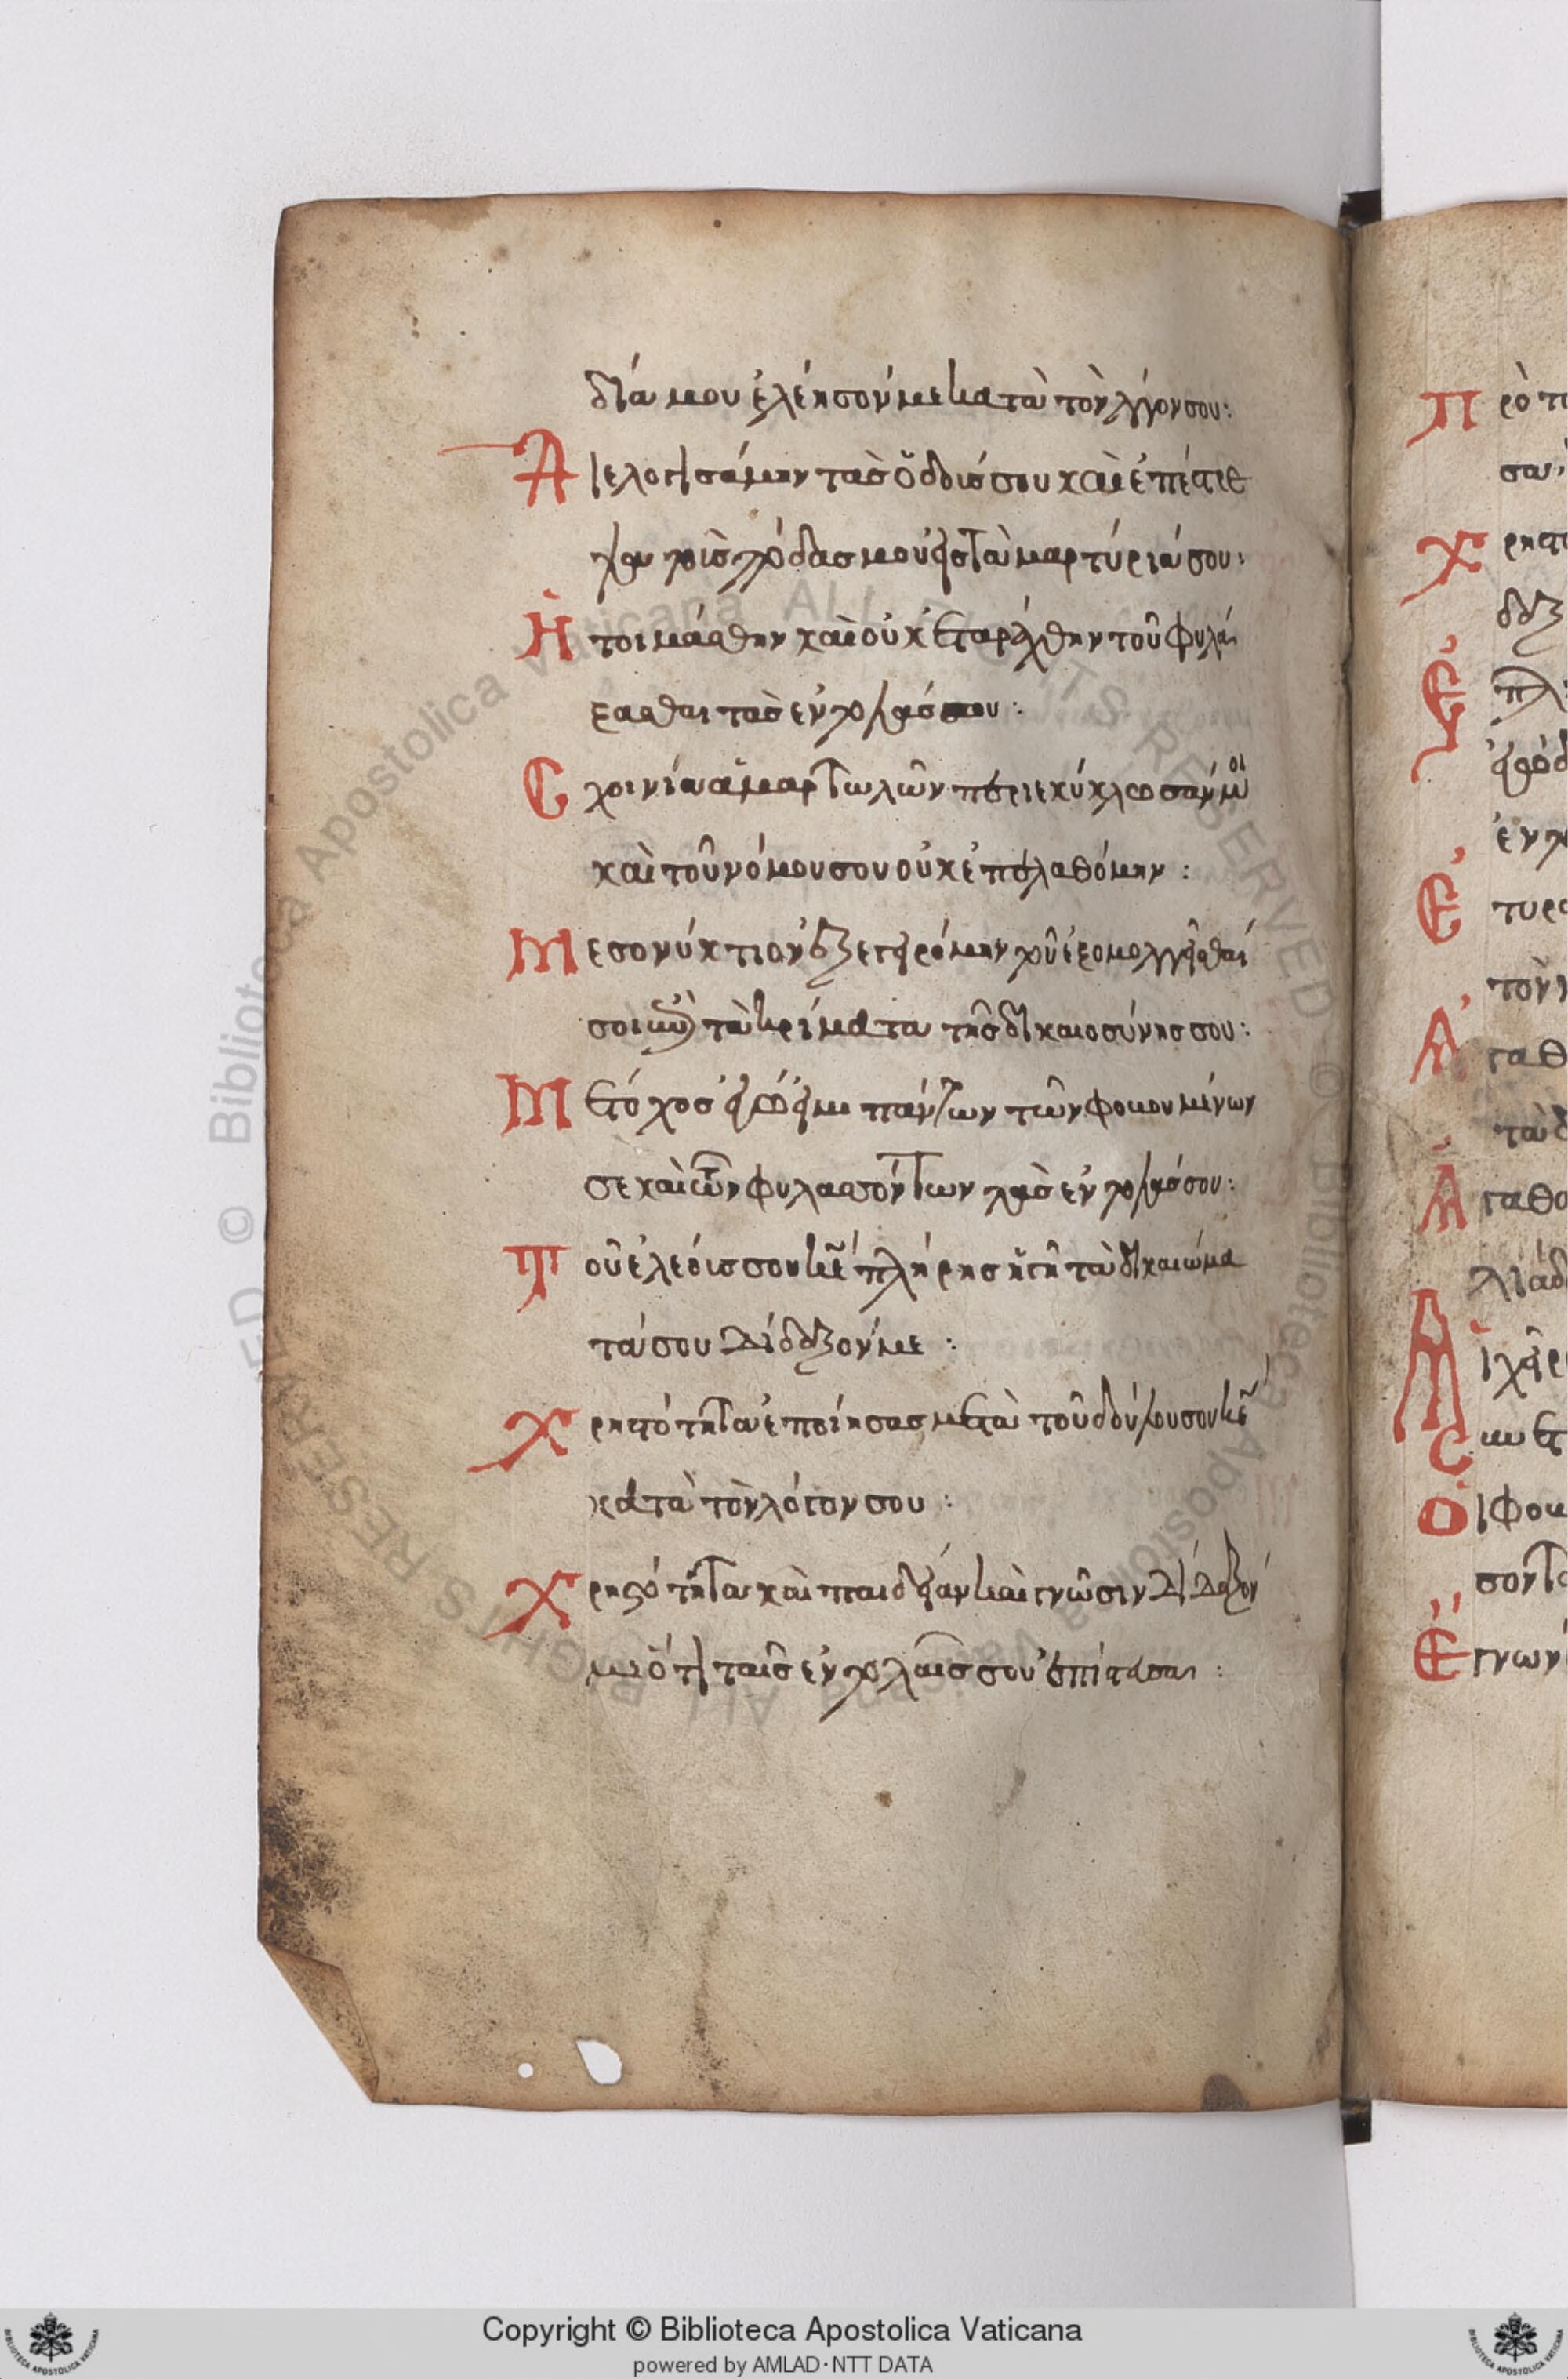 δία μου ἐλέησόν με κατὰ τὸν λόγον σου:
Διελογησάμην τὰσ ὅδδούσ σου καὶ ἐπέστρε
ψα τοὺσ πόδασ μου εἰσ τὰ μαρτύριά σου:
Ἡτοιμάσθην καὶ οὐκ ἐταράχθην τοῦ φυλά
ξασθαι τὰσ ἐντολάσ σου:
Σχοινία ἁμαρτωλῶν περιεκύκλωσάν μοι
καὶ τοῦ νόμου σου οὐκ ἐπελαθόμην:
Μεσονύκτιον ἐξεγειρόμην τοῦ ἐξομολογεῖσθαί
σοι ἐπὶ τὰ κρίματα τῆσ δικαιοσύνησ σου:
Μετόχοσ ἐγώ εἰμι πάντων τῶν φοβουμένων
σε καὶ τῶν φυλασσόντων τὰσ ἐντολάσ σου:
Τοῦ ἐλέουσ σου κε πλήρησ ἡ γῆ τὰ δικαιώμα
τά σου δίδαξόν με:
Χρηστότητα ἐποίησασ μετὰ τοῦ δούλου σου κε
κατὰ τὸν λόγον σου:
Χρηστότητα καὶ παιδείαν καὶ γνῶσιν δίδαξόν
με ὅτι ταῖσ ἐντολαῖσ σου ἐπίστευσα:
Copyright © Biblioteca Apostolica Vaticana
powered by AMLAD·NTT DATA